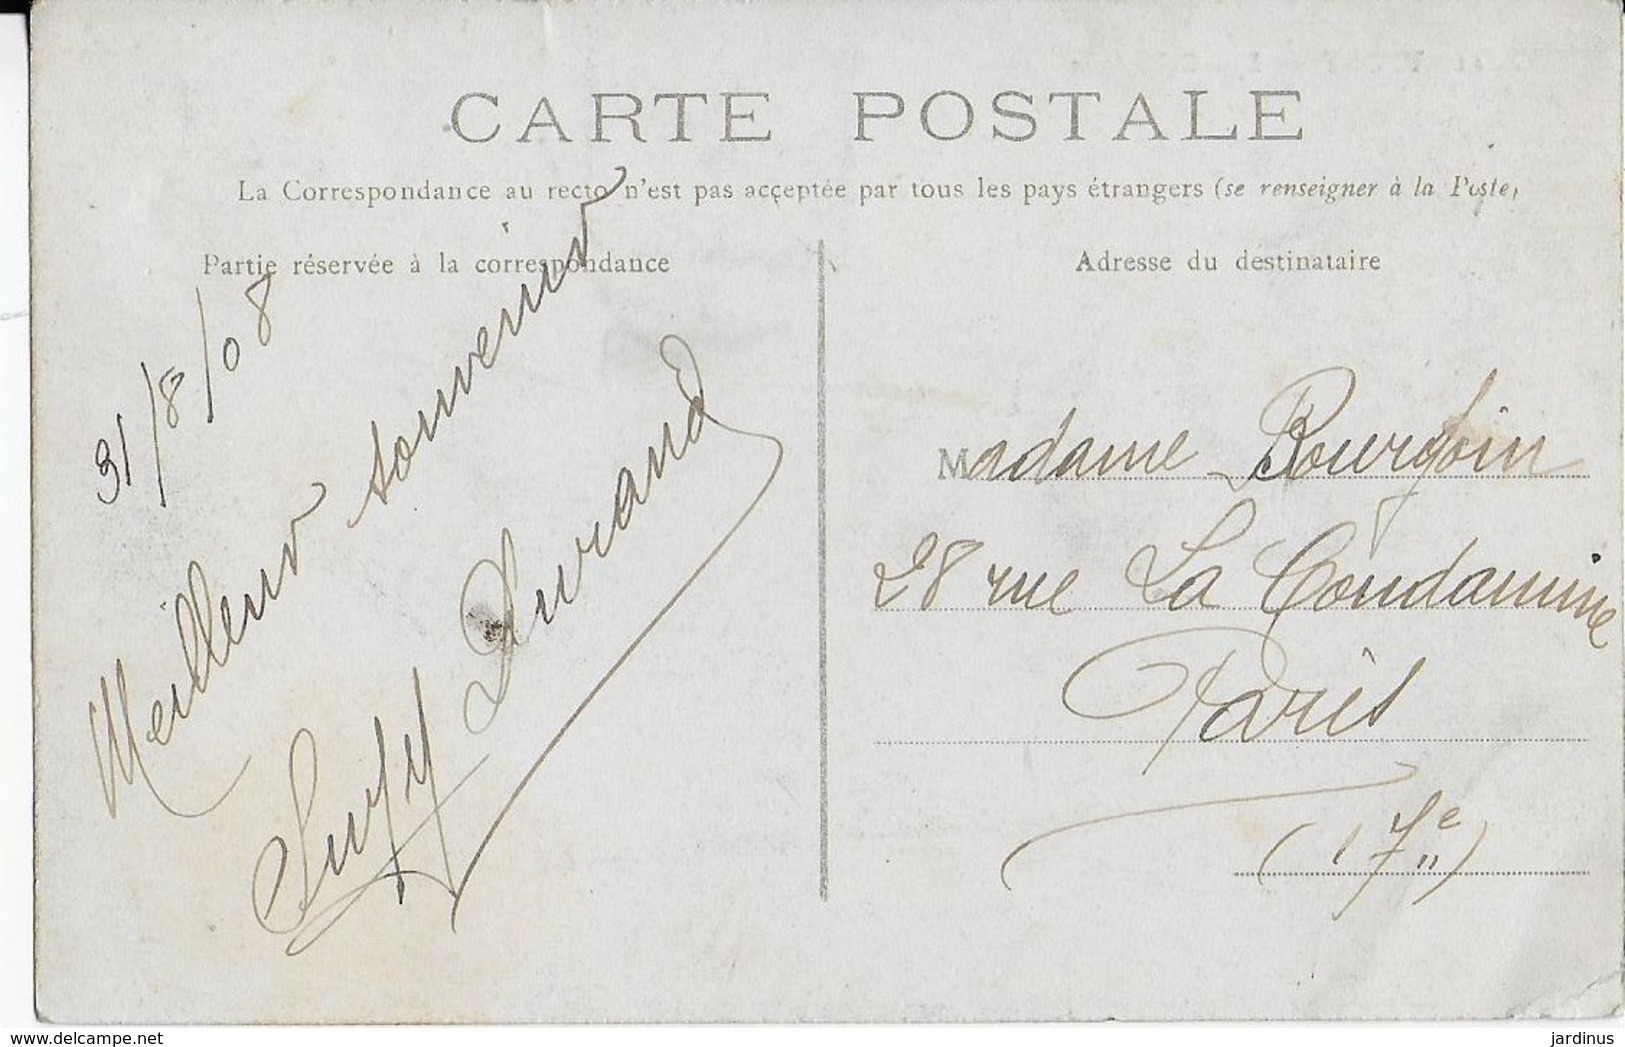 CARTE POSTALE
La Correspondance au recto n'est pas acceptée par tous les pays étrangers (se renseigner à la Poste)
Partie réservée à la correspondance
Adresse du destinataire
31/8/08
Meilleur souvenir
Suzy Durand
Madame Bourgoin
28 rue La Condamine
Paris
(17e)
delcampe.net
jardinus